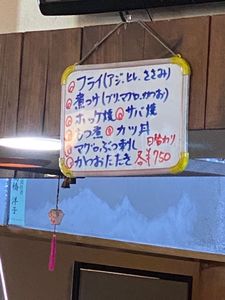 フライ(アジ、ヒレ、ささみ)
煮つけ(ブリ、マグロ、かつお)
ホッケ焼 サバ焼
もつ煮 カツ丼
マグロぶつ刺し 日替り
かつおたたき 各¥750
橋洋子